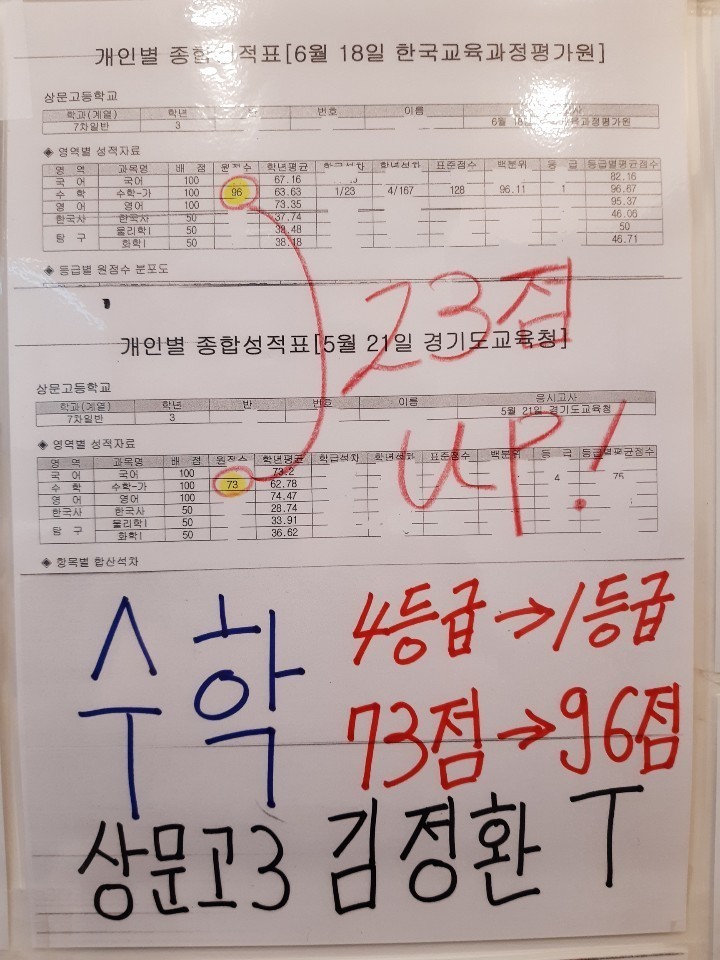 개인별 종합성적표[6월 18일 한국교육과정평가원]
상문고등학교
학과(계열) 학년 번호 이름
7차일반 3 6월 18일 교육과정평가원
◈ 영역별 성적자료
영 역 과목명 배 점 원점수 학년평균 학급석차 학년석차 표준점수 백분위 등 급 등급별평균점수
국 어 국어 100 67.16 82.16
수 학 수학-가 100 96 63.63 1/23 4/167 128 96.11 1 96.67
영 어 영어 100 73.35 95.37
한국사 한국사 50 37.74 46.06
탐 구 물리학Ⅰ 50 38.48 50
화학Ⅰ 50 38.18 46.71
◈ 등급별 원점수 분포도
23점
개인별 종합성적표[5월 21일 경기도교육청]
상문고등학교
학과(계열) 학년 반 번호 이름 응시고사
7차일반 3 5월 21일 경기도교육청
UP!
◈ 영역별 성적자료
영 역 과목명 배 점 원점수 학년평균 학급석차 학년석차 표준점수 백분위 등 급 등급별평균점수
국 어 국어 100 73.2
수 학 수학-가 100 73 62.78 4 75
영 어 영어 100 74.47
한국사 한국사 50 28.74
탐 구 물리학Ⅰ 50 33.91
화학Ⅰ 50 36.62
◈ 항목별 합산석차
수학 4등급→1등급
73점→96점
상문고3 김정환 T